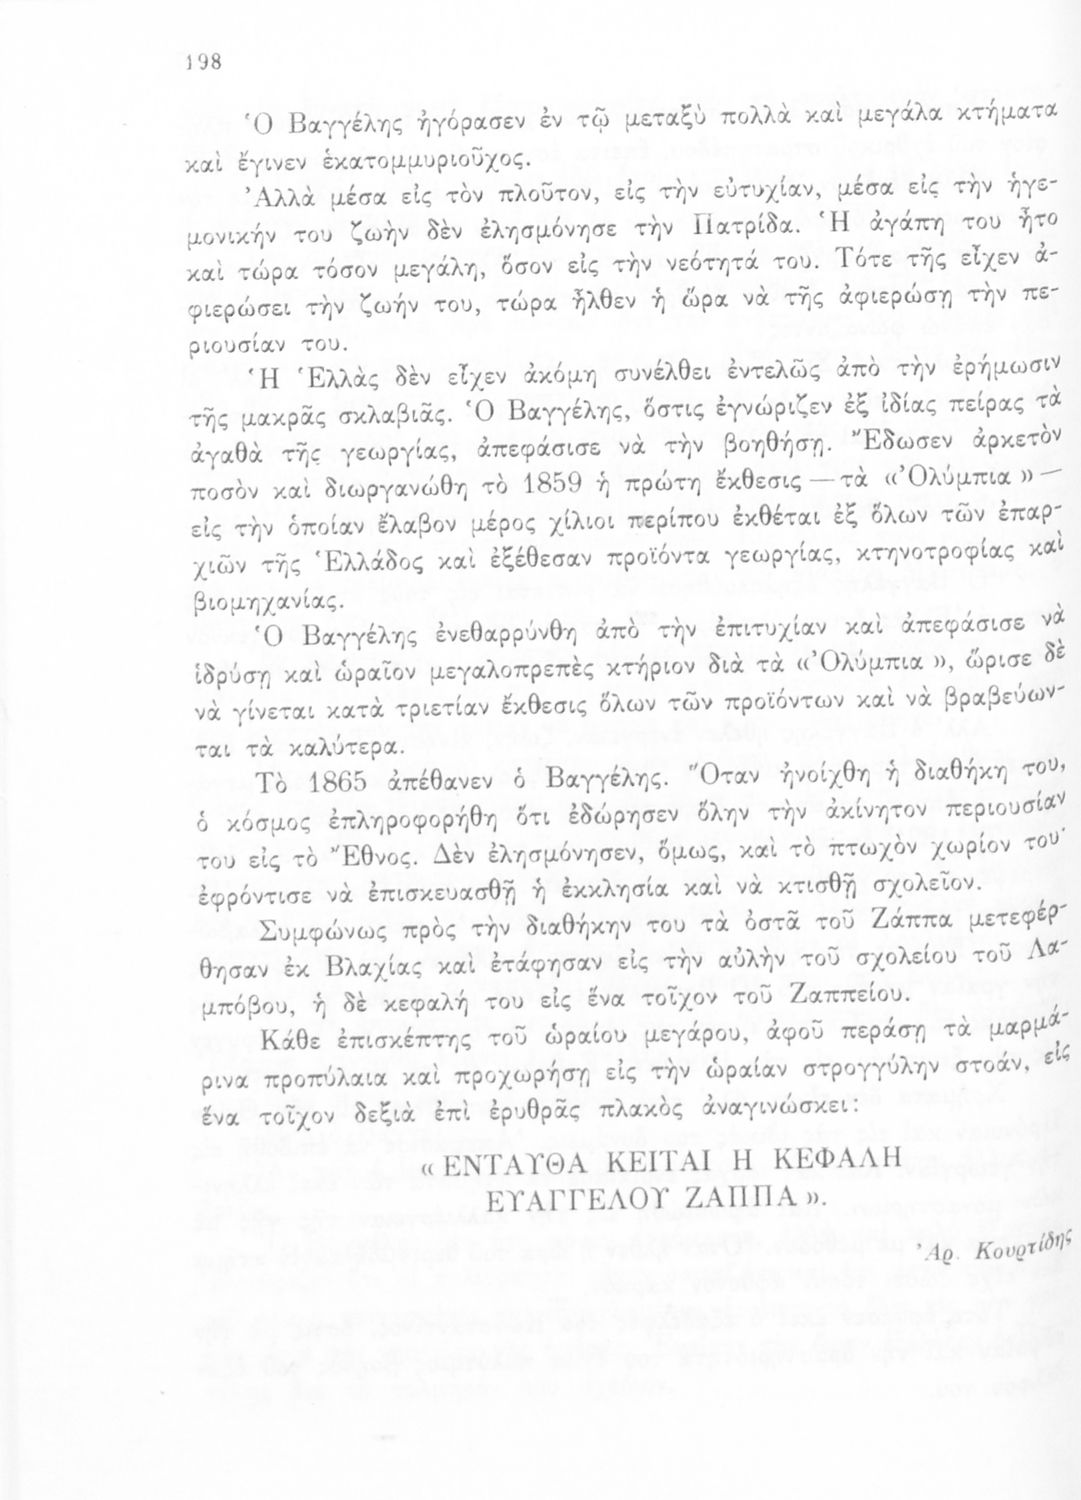 198
Ὁ Βαγγέλης ἠγόρασεν ἐν τῷ μεταξὺ πολλὰ καὶ μεγάλα κτήματα
καὶ ἔγινεν ἑκατομμυριοῦχος.
Ἀλλὰ μέσα εἰς τὸν πλοῦτον, εἰς τὴν εὐτυχίαν, μέσα εἰς τὴν ἡγε-
μονικήν του ζωὴν δὲν ἐλησμόνησε τὴν Πατρίδα. Ἡ ἀγάπη του ἦτο
καὶ τώρα τόσον μεγάλη, ὅσον εἰς τὴν νεότητά του. Τότε τῆς εἶχεν ἀ-
φιερώσει τὴν ζωήν του, τώρα ἦλθεν ἡ ὥρα νὰ τῆς ἀφιερώσῃ τὴν πε-
ριουσίαν του.
Ἡ Ἑλλὰς δὲν εἶχεν ἀκόμη συνέλθει ἐντελῶς ἀπὸ τὴν ἐρήμωσιν
τῆς μακρᾶς σκλαβιᾶς. Ὁ Βαγγέλης, ὅστις ἐγνώριζεν ἐξ ἰδίας πείρας τὰ
ἀγαθὰ τῆς γεωργίας, ἀπεφάσισε νὰ τὴν βοηθήσῃ. Ἔδωσεν ἀρκετὸν
ποσὸν καὶ διωργανώθη τὸ 1859 ἡ πρώτη ἔκθεσις — τὰ «Ὀλύμπια» —
εἰς τὴν ὁποίαν ἔλαβον μέρος χίλιοι περίπου ἐκθέται ἐξ ὅλων τῶν ἐπαρ-
χιῶν τῆς Ἑλλάδος καὶ ἐξέθεσαν προϊόντα γεωργίας, κτηνοτροφίας καὶ
βιομηχανίας.
Ὁ Βαγγέλης ἐνεθαρρύνθη ἀπὸ τὴν ἐπιτυχίαν καὶ ἀπεφάσισε νὰ
ἱδρύσῃ καὶ ὡραῖον μεγαλοπρεπὲς κτήριον διὰ τὰ «Ὀλύμπια», ὥρισε δὲ
νὰ γίνεται κατὰ τριετίαν ἔκθεσις ὅλων τῶν προϊόντων καὶ νὰ βραβεύων-
ται τὰ καλύτερα.
Τὸ 1865 ἀπέθανεν ὁ Βαγγέλης. Ὅταν ἠνοίχθη ἡ διαθήκη του,
ὁ κόσμος ἐπληροφορήθη ὅτι ἐδώρησεν ὅλην τὴν ἀκίνητον περιουσίαν
του εἰς τὸ Ἔθνος. Δὲν ἐλησμόνησεν, ὅμως, καὶ τὸ πτωχὸν χωρίον του·
ἐφρόντισε νὰ ἐπισκευασθῇ ἡ ἐκκλησία καὶ νὰ κτισθῇ σχολεῖον.
Συμφώνως πρὸς τὴν διαθήκην του τὰ ὀστᾶ τοῦ Ζάππα μετεφέρ-
θησαν ἐκ Βλαχίας καὶ ἐτάφησαν εἰς τὴν αὐλὴν τοῦ σχολείου τοῦ Λα-
μπόβου, ἡ δὲ κεφαλή του εἰς ἕνα τοῖχον τοῦ Ζαππείου.
Κάθε ἐπισκέπτης τοῦ ὡραίου μεγάρου, ἀφοῦ περάσῃ τὰ μαρμά-
ρινα προπύλαια καὶ προχωρήσῃ εἰς τὴν ὡραίαν στρογγύλην στοάν, εἰς
ἕνα τοῖχον δεξιὰ ἐπὶ ἐρυθρᾶς πλακὸς ἀναγινώσκει:
« ΕΝΤΑΥΘΑ ΚΕΙΤΑΙ Η ΚΕΦΑΛΗ
ΕΥΑΓΓΕΛΟΥ ΖΑΠΠΑ ».
Ἀρ. Κουρτίδης